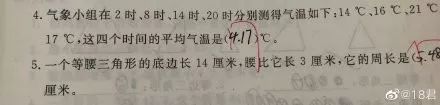 4. 气象小组在 2 时、8 时、14 时、20 时分别测得气温如下:14 ℃、16 ℃、21 ℃
17 ℃,这四个时间的平均气温是(4.17)℃。
5. 一个等腰三角形的底边长 14 厘米,腰比它长 3 厘米,它的周长是(5.48
厘米。
@18君